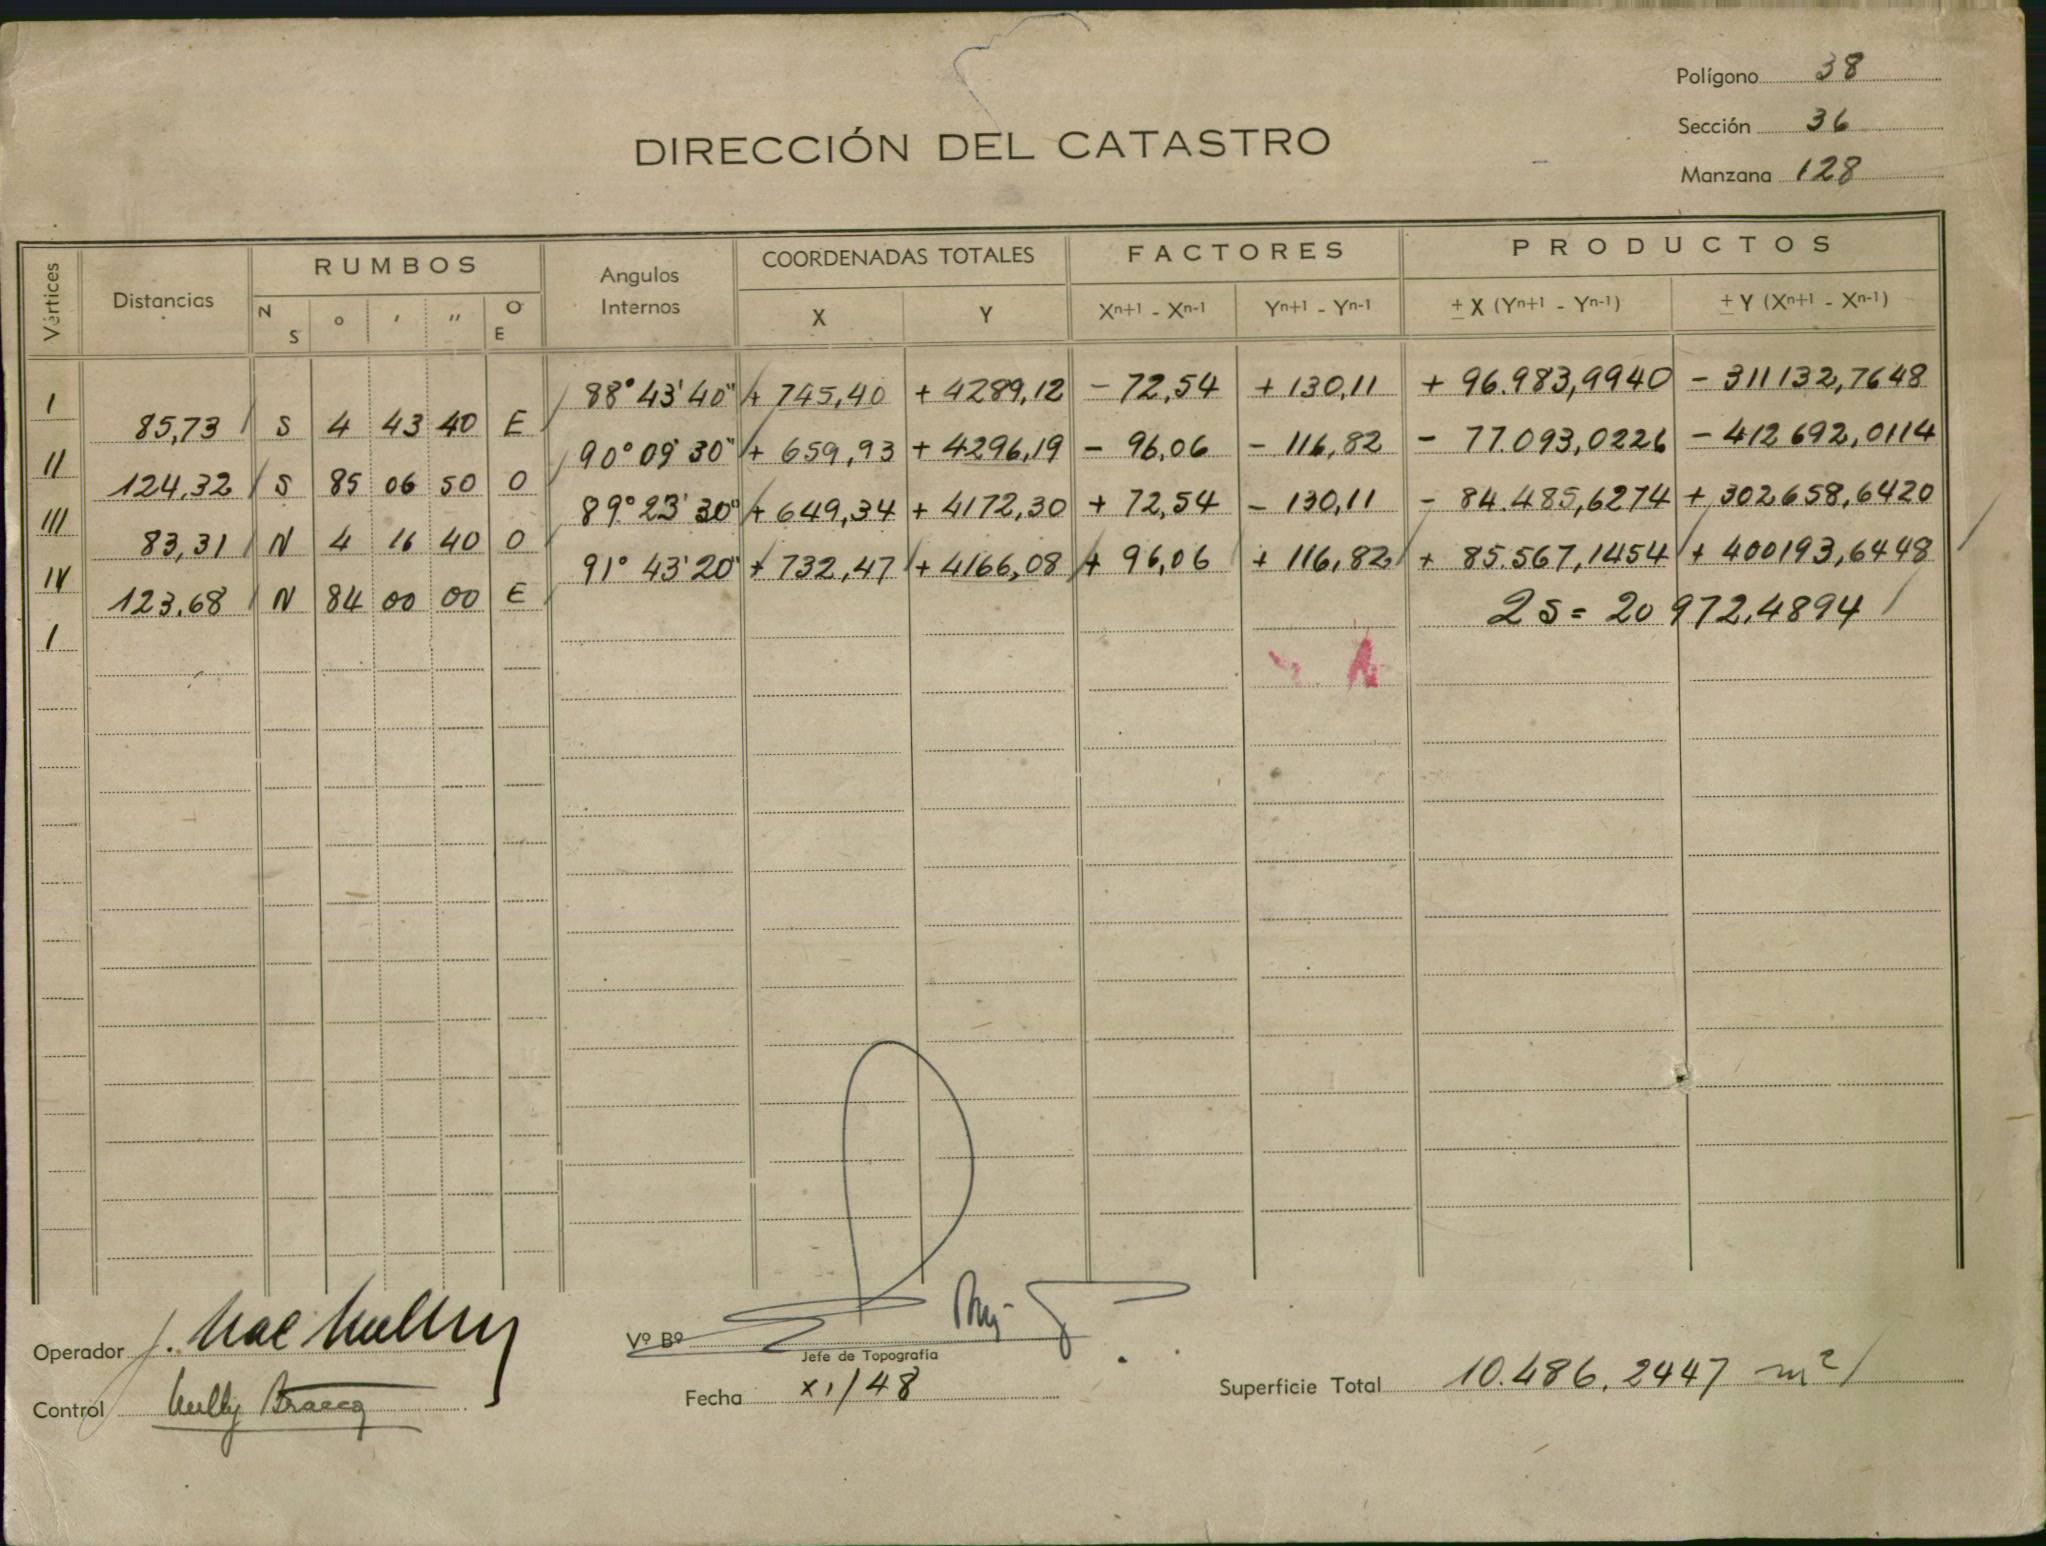 Polígono 38
Sección 36
Manzana 128
DIRECCIÓN DEL CATASTRO
Vértices Distancias RUMBOS Angulos Internos COORDENADAS TOTALES FACTORES PRODUCTOS
N S ° ' " O E X Y Xn+1 - Xn-1 Yn+1 - Yn-1 ± X (Yn+1 - Yn-1) ± Y (Xn+1 - Xn-1)
I 88° 43' 40" + 745,40 + 4289,12 - 72,54 + 130,11 + 96.983,9940 - 311132,7648
85,73 S 4 43 40 E
II 90° 09' 30" + 659,93 + 4296,19 - 96,06 - 116,82 - 77.093,0226 - 412692,0114
124,32 S 85 06 50 O
III 89° 23' 30" + 649,34 + 4172,30 + 72,54 - 130,11 - 84.485,6274 + 302658,6420
83,31 N 4 16 40 O
IV 91° 43' 20" + 732,47 + 4166,08 + 96,06 + 116,82 + 85.567,1454 + 400193,6448
123,68 N 84 00 00 E
2 S = 20 972,4894
I
Operador J. Mac
Vº Bº
Jefe de Topografía
Control
Fecha XI/48
Superficie Total 10.486,2447 m²